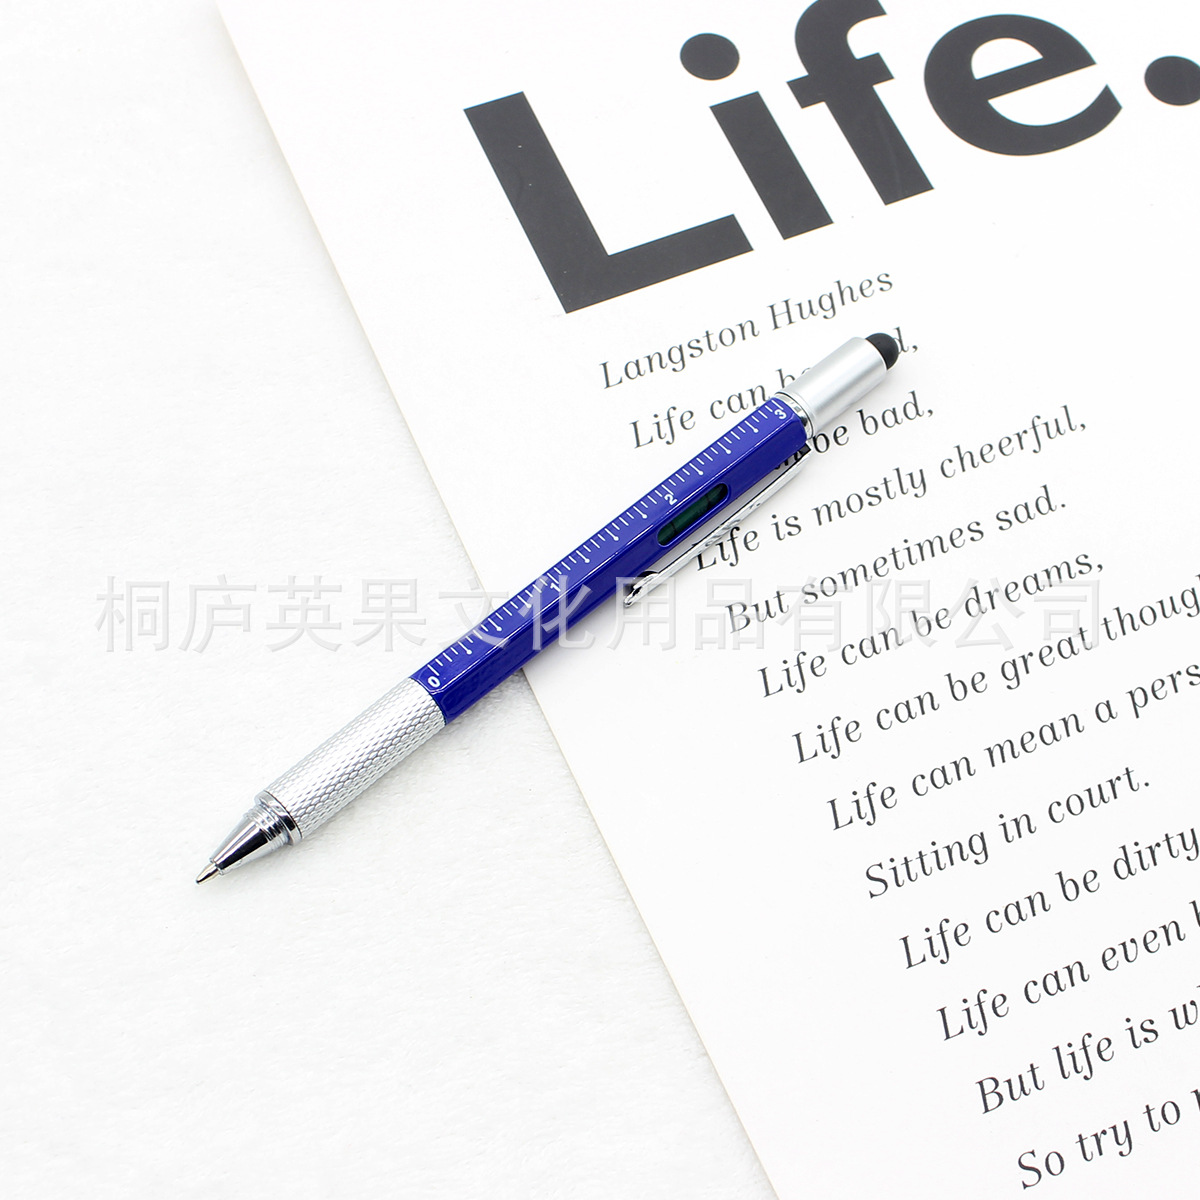 Life.
Langston Hughes
Life can be d,
n be bad,
Life is mostly cheerful,
But sometimes sad.
Life can be dreams,
Life can be great thoug
Life can mean a pers
Sitting in court.
Life can be dirty
Life can even
But life is w
So try to
0 1 2 3
桐庐英果文化用品有限公司